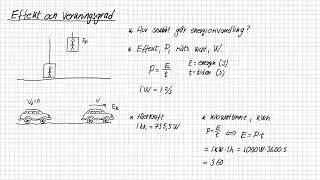 Effekt och verkningsgrad
* Hur snabbt går energiomvandling?
Ep
* Effekt, P, mäts watt, W.
P = E/t
E = energin (J)
t = tiden (s)
1W = 1 J/s
V₀=0
V
Ek
* Hästkraft
1 hk = 735,5 W
* Kilowattimme, kWh
P = E/t ⇔ E = P·t
= 1kW·1h = 1000W·3600s
= 3,60